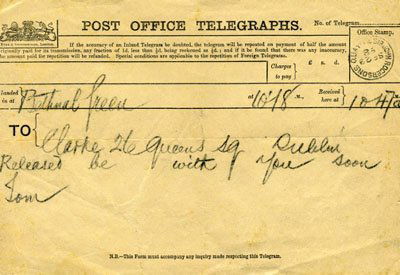 POST OFFICE TELEGRAPHS.
No. of Telegram
If the accuracy of an Inland Telegram be doubted, the telegram will be repeated on payment of half the amount
originally paid for its transmission, any fraction of 1d. less than ½d. being reckoned as ½d.; and if it be found that there was any inaccuracy,
the amount paid for repetition will be refunded. Special conditions are applicable to the repetition of Foreign Telegrams.
Office Stamp.
Charges to pay
£ s. d.
Handed in at
Bethnal Green
at
10.18
Received here at
TO
Clarke 26 Queens Sq Dublin
Released be with you soon
Tom
N.B.—This Form must accompany any inquiry made respecting this Telegram.